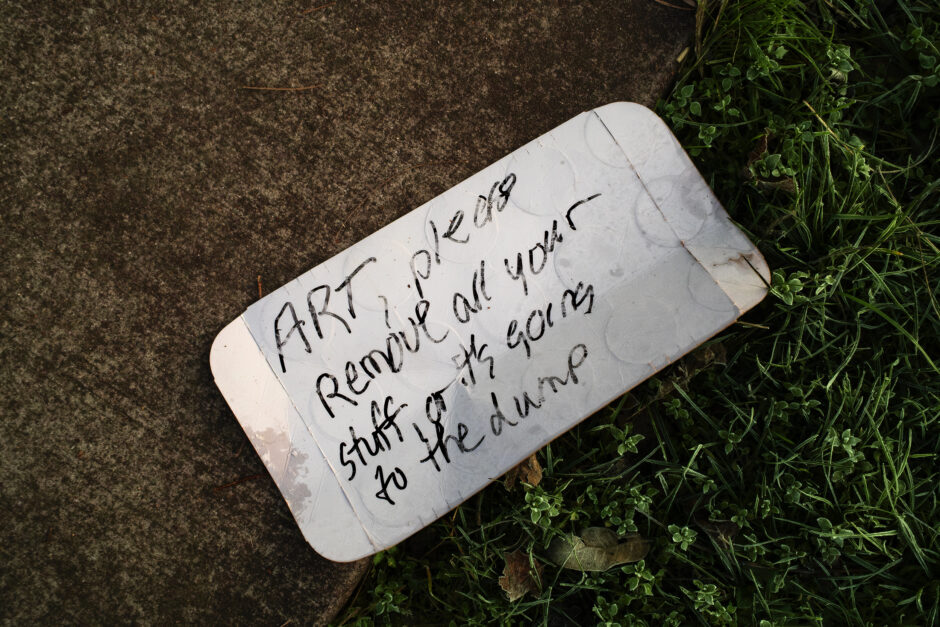 ART, pleas
Remove all your
stuff or it's going
to the dump